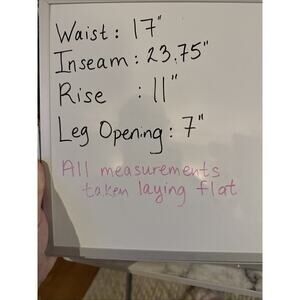 Waist: 17"
Inseam: 23.75"
Rise : 11"
Leg Opening: 7"
All measurements
taken laying flat